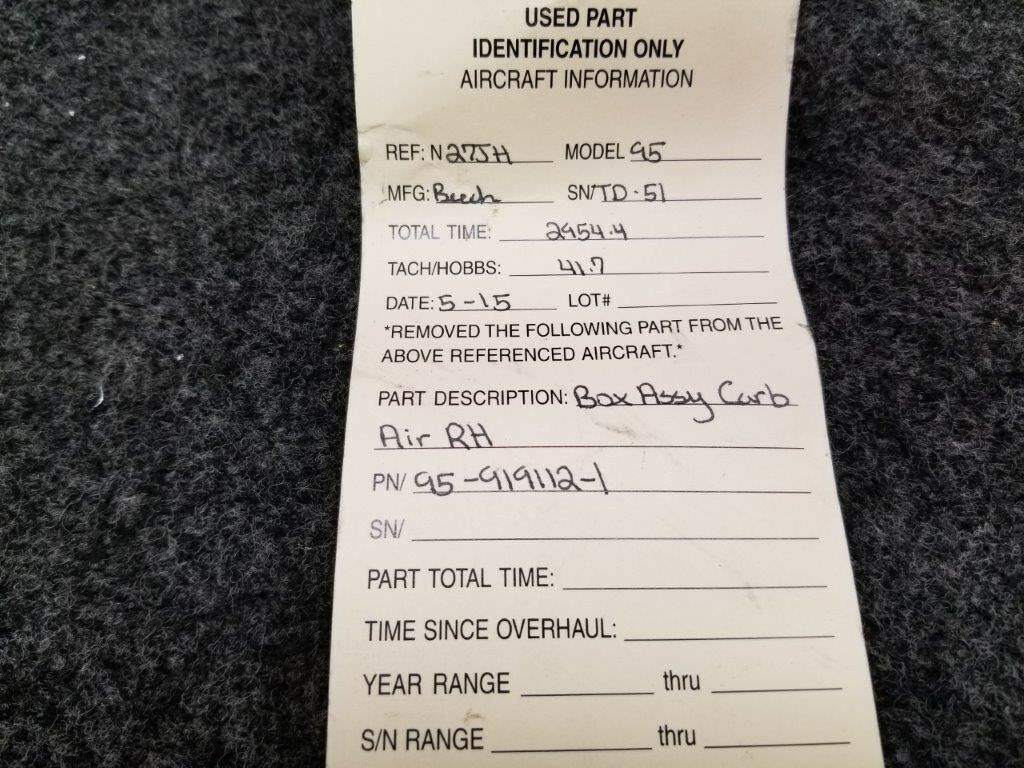 USED PART
IDENTIFICATION ONLY
AIRCRAFT INFORMATION
REF: N 275H MODEL 95
MFG: Beech SN/TD-51
TOTAL TIME: 2954.4
TACH/HOBBS: 41.7
DATE: 5-15 LOT#
*REMOVED THE FOLLOWING PART FROM THE
ABOVE REFERENCED AIRCRAFT.*
PART DESCRIPTION: Box Assy Carb
Air RH
PN/ 95-919112-1
SN/
PART TOTAL TIME:
TIME SINCE OVERHAUL:
YEAR RANGE thru
S/N RANGE thru